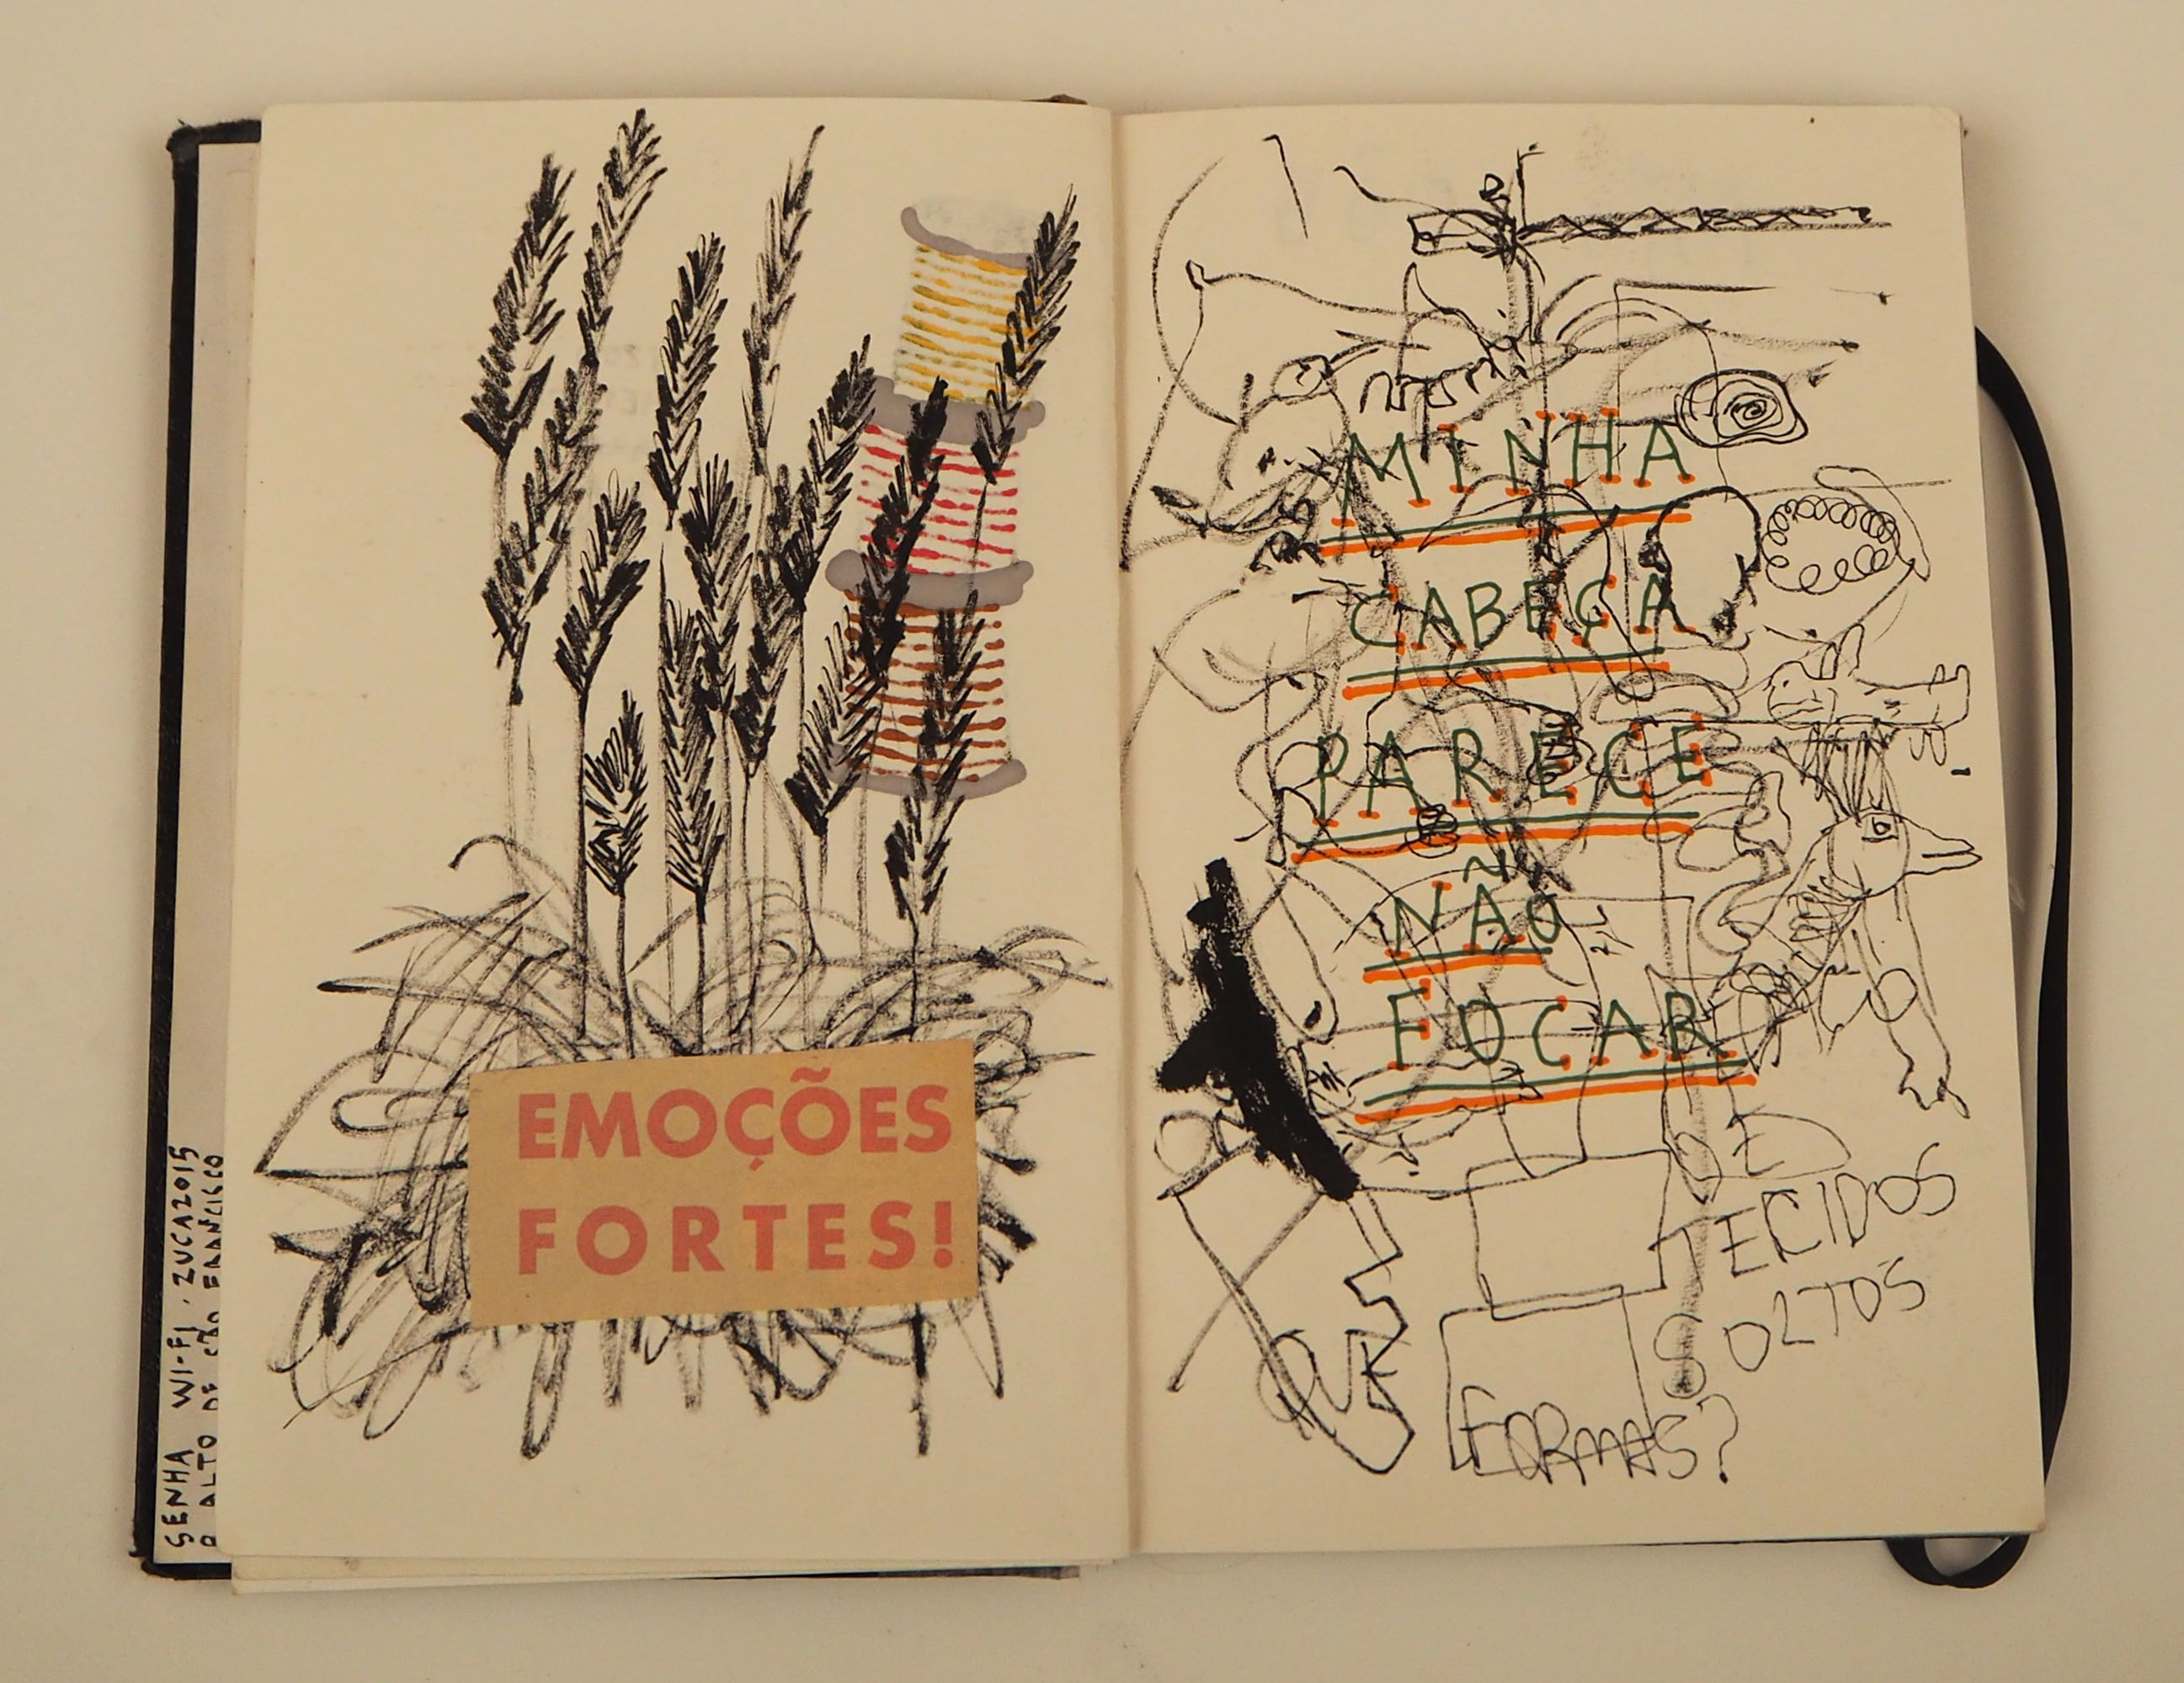 SENHA WI-FI . ZUCA2015
O ALTO DE SÃO FRANCISCO
EMOÇÕES
FORTES!
MINHA
CABEÇA
PARECE
NÃO
FOCAR
DE
TECIDOS
SOLTOS
QUE
FORMAS?